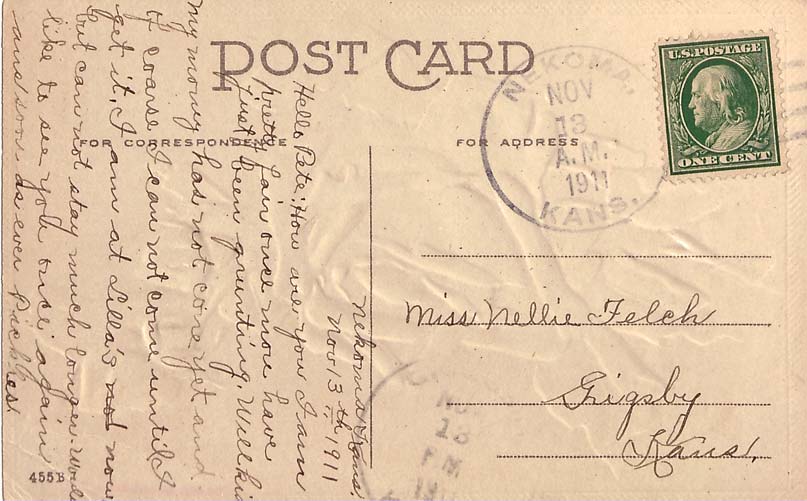 POST CARD
FOR CORRESPONDENCE
FOR ADDRESS
NEKOMA,
NOV
13
A.M.
1911
KANS.
U.S. POSTAGE
ONE CENT
Miss Nellie Felch
Grigsby
Kans.
Nekoma Kans.
Nov 13th 1911
Hello Pete: How are you I am
pretty fair once more have
just been grunting. Well
my money has not come yet and
of coarse I can not come until I
get it. I am at Lilla's now
but can not stay much longer. Would
like to see you once again
and soon. as ever
455B